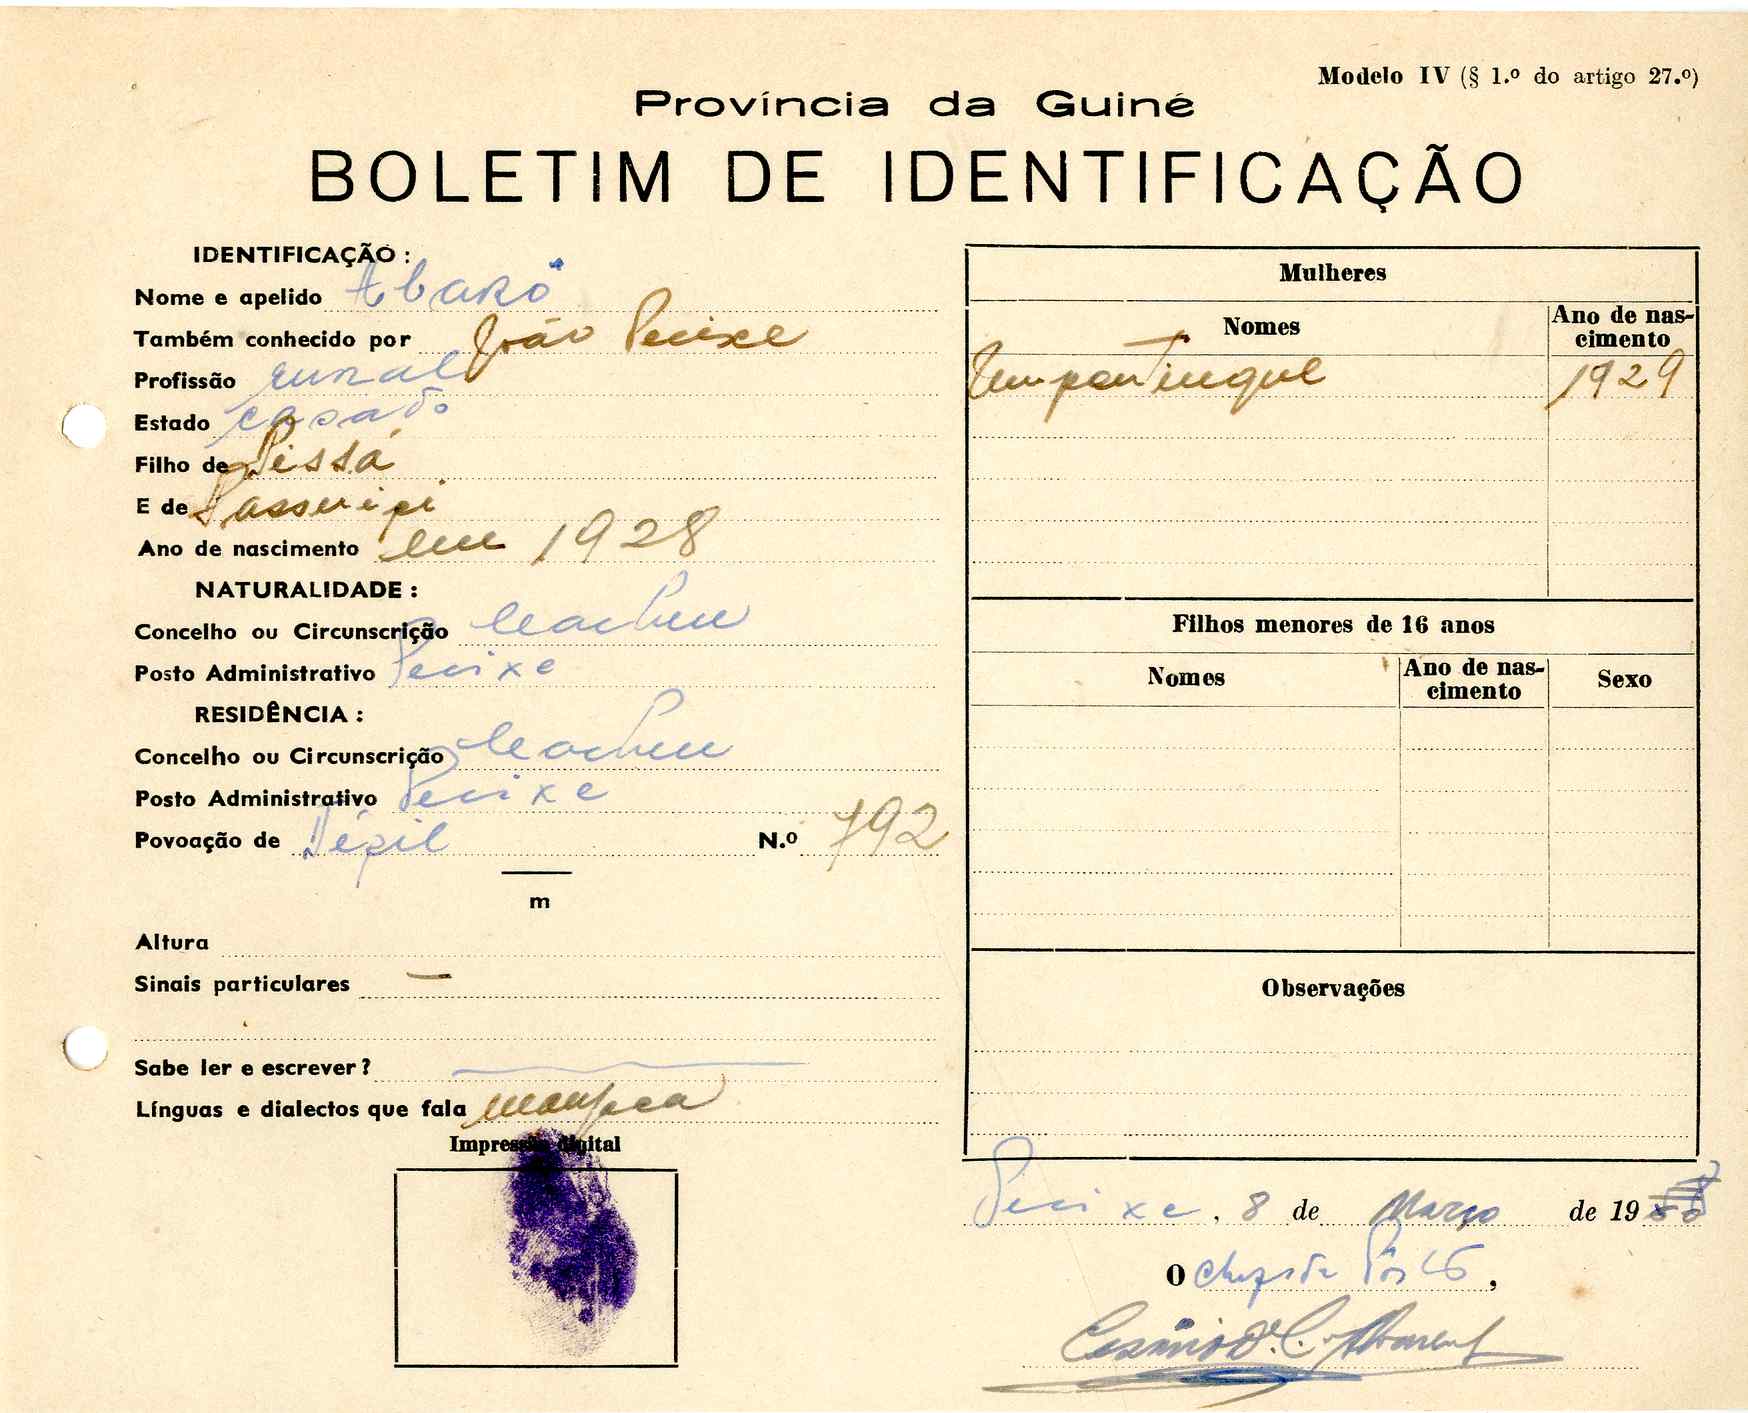 Modelo IV (§ 1.º do artigo 27.º)
Província da Guiné
BOLETIM DE IDENTIFICAÇÃO
IDENTIFICAÇÃO :
Nome e apelido Abaró
Também conhecido por João Pecixe
Profissão rural
Estado casado
Filho de Pissá
E de
Ano de nascimento em 1928
NATURALIDADE :
Concelho ou Circunscrição Cacheu
Posto Administrativo Pecixe
RESIDÊNCIA :
Concelho ou Circunscrição Cacheu
Posto Administrativo Pecixe
Povoação de N.º 792
m
Altura
Sinais particulares —
Sabe ler e escrever?
Línguas e dialectos que fala manjaca
Impressão digital
Mulheres
Nomes
Ano de nas-
cimento
1929
Filhos menores de 16 anos
Nomes
Ano de nas-
cimento
Sexo
Observações
Pecixe, 8 de Março de 19
O chefe de Pôsto,